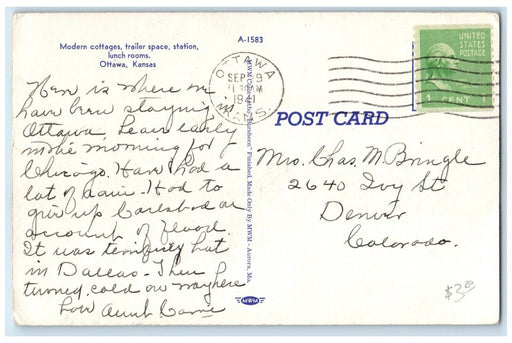 A-1583
Modern cottages, trailer space, station,
lunch rooms.
Ottawa, Kansas
OTTAWA
SEP 9
11 30 AM
1941
KANS.
UNITED
STATES
POSTAGE
1 CENT 1
POST CARD
Here is where we
have been staying
Ottawa. Leave early
in the morning for
Chicago. Have had a
lot of rain. Had to
give up Carlsbad on
account of flood.
It was terrifically hot
in Dallas - Then
turned cold on way here
Love Aunt Carrie
MWM Color-Litho "Sheen" Finished, Made Only By MWM - Aurora, Mo.
MWM
Mrs. Chas. M. Bringle
2640 Ivy St
Denver
Colorado.
$3.00